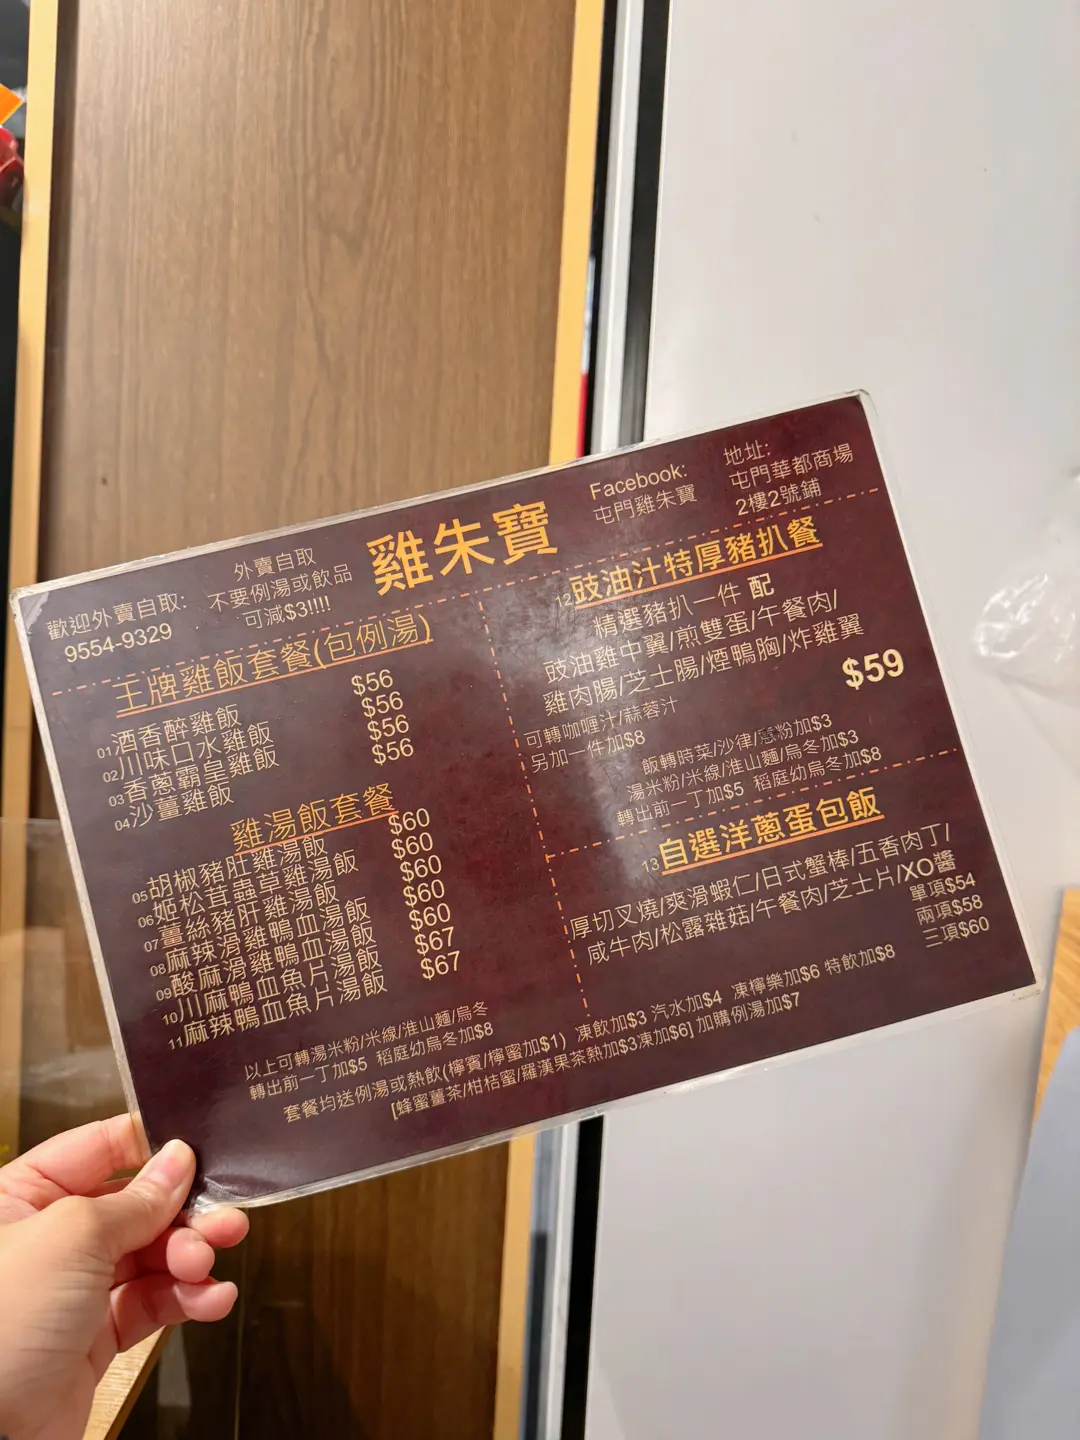 歡迎外賣自取:
9554-9329
外賣自取
不要例湯或飲品
可減$3!!!!
雞朱寶
Facebook:
屯門雞朱寶
地址:
屯門華都商場
2樓2號鋪
王牌雞飯套餐(包例湯)
01酒香醉雞飯 $56
02川味口水雞飯 $56
03香蔥霸皇雞飯 $56
04沙薑雞飯 $56
雞湯飯套餐
05胡椒豬肚雞湯飯 $60
06姬松茸蟲草雞湯飯 $60
07薑絲豬肝雞湯飯 $60
08麻辣滑雞鴨血湯飯 $60
09酸麻滑雞鴨血湯飯 $60
10川麻鴨血魚片湯飯 $67
11麻辣鴨血魚片湯飯 $67
以上可轉湯米粉/米線/淮山麵/烏冬
轉出前一丁加$5 稻庭幼烏冬加$8
12豉油汁特厚豬扒餐
精選豬扒一件 配
豉油雞中翼/煎雙蛋/午餐肉/
雞肉腸/芝士腸/煙鴨胸/炸雞翼
$59
可轉咖喱汁/蒜蓉汁
另加一件加$8
飯轉時菜/沙律/薯粉加$3
湯米粉/米線/淮山麵/烏冬加$3
轉出前一丁加$5 稻庭幼烏冬加$8
13自選洋蔥蛋包飯
厚切叉燒/爽滑蝦仁/日式蟹棒/五香肉丁/
咸牛肉/松露雜菇/午餐肉/芝士片/XO醬
單項$54
兩項$58
三項$60
套餐均送例湯或熱飲(檸賓/檸蜜加$1) 凍飲加$3 汽水加$4 凍檸樂加$6 特飲加$8
[蜂蜜薑茶/柑桔蜜/羅漢果茶熱加$3凍加$6] 加購例湯加$7